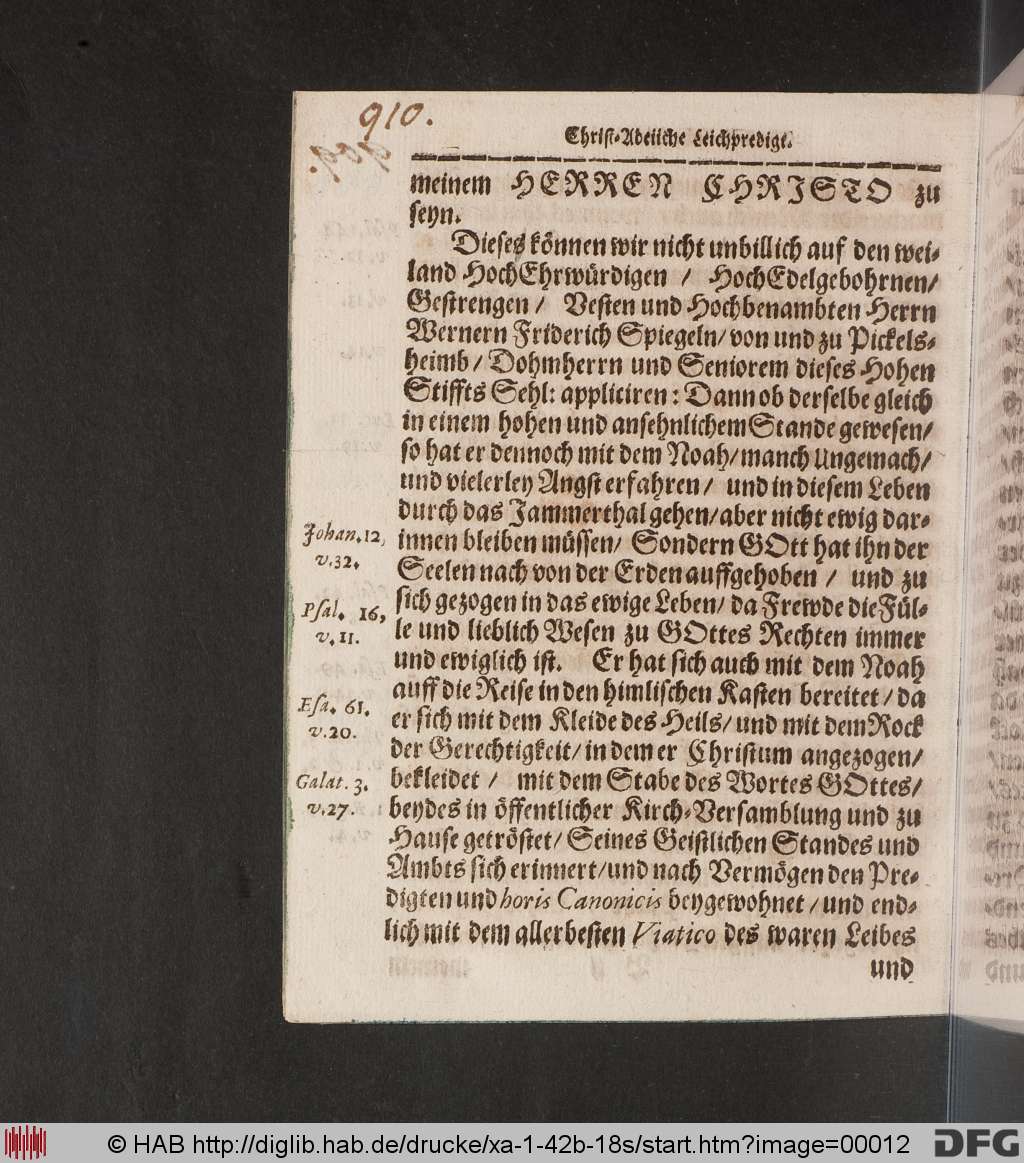 910.
Christ-Adeliche Leichpredigt.
meinem HERREN CHRISTO zu
seyn.
Dieses können wir nicht unbillich auf den wei-
land HochEhrwürdigen / HochEdelgebohrnen/
Gestrengen / Vesten und Hochbenambten Herrn
Wernern Friderich Spiegeln/ von und zu Pickels-
heimb / Dohmherrn und Seniorem dieses Hohen
Stiffts Sehl: appliciren : Dann ob derselbe gleich
in einem hohen und ansehnlichem Stande gewesen/
so hat er dennoch mit dem Noah/ manch Ungemach/
und vielerley Angst erfahren / und in diesem Leben
durch das Jammerthal gehen/ aber nicht ewig dar-
Johan. 12,
innen bleiben müssen/ Sondern GOtt hat ihn der
v. 32.
Seelen nach von der Erden auffgehoben / und zu
sich gezogen in das ewige Leben/ da Frewde die Fül-
Psal. 16,
le und lieblich Wesen zu GOttes Rechten immer
v. 11.
und ewiglich ist. Er hat sich auch mit dem Noah
auff die Reise in den himlischen Kasten bereitet / da
Esa. 61.
er sich mit dem Kleide des Heils/ und mit dem Rock
v. 20.
der Gerechtigkeit/ in dem er Christum angezogen/
Galat. 3.
bekleidet / mit dem Stabe des Wortes GOttes/
v. 27.
beydes in öffentlicher Kirch-Versamblung und zu
Hause getröstet/ Seines Geistlichen Standes und
Ambts sich erinnert/ und nach Vermögen den Pre-
digten und horis Canonicis beygewohnet / und end-
lich mit dem allerbesten Viatico des waren Leibes
und
© HAB http://diglib.hab.de/drucke/xa-1-42b-18s/start.htm?image=00012
DFG